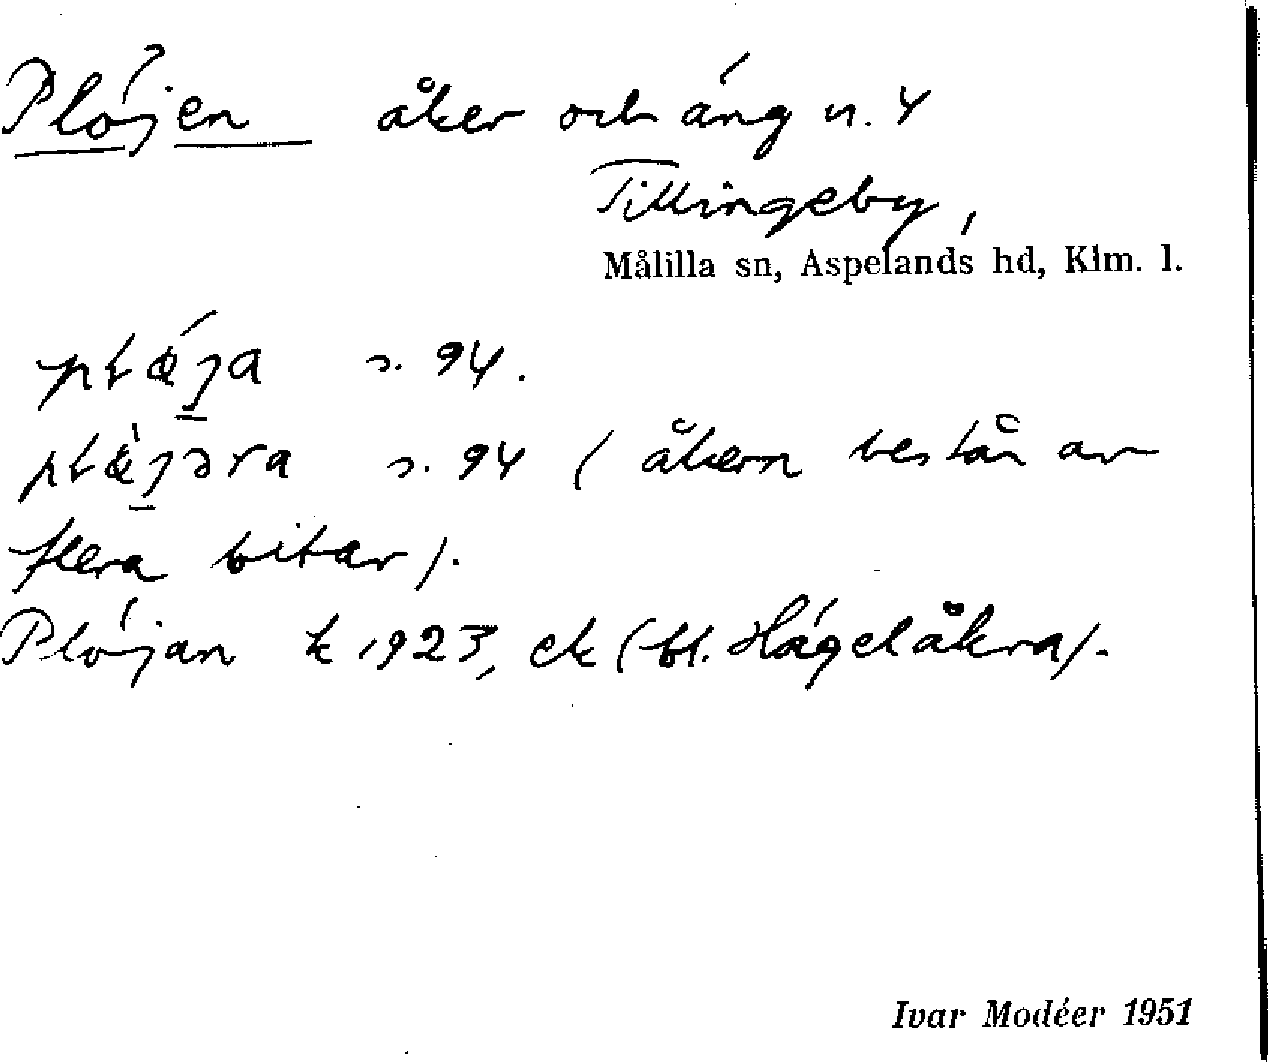 Plöjen åker och äng n. 4
Tillingeby,
Målilla sn, Aspelands hd, Klm. l.
s. 94.
s. 94 (åkern består av
flera bitar).
Plöjan k 1923, ek (bl. Hägelåkra).
Ivar Modéer 1951